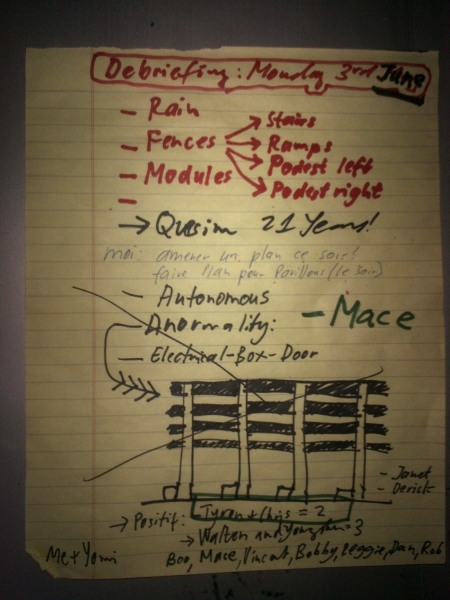 Debriefing: Monday 3rd June
- Rain
- Fences → Stairs
→ Ramps
→ Podest left
→ Podest right
- Modules
-
→ Quesim 21 Years!
moi: amener un plan ce soir
faire plan pour Pavillons (le soir)
- Autonomous
- Anormality:
- Mace
- Electrical-Box-Door
- Janet
- Derick
→ Positif: Tyron + Chris = 2
→ Walton and = 3
Me + Yomi
Boo, Mace, Vincent, Bobby, Reggie, Dan, Rob